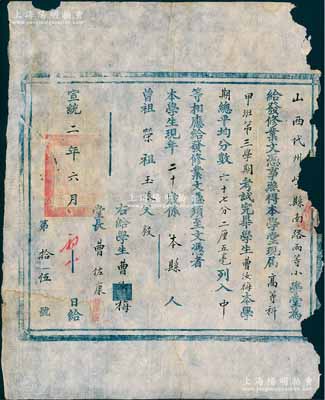 上海陽明拍賣
山西代州 縣南路兩等小學堂為
給發修業文憑事照得本學堂現届高等科
甲班第三學期考試完畢學生曹汝梅本學
期總平均分數六十七分二厘五毫列入中
等相應給發修業文憑須至文憑者
本學生現年二十歲係本縣人
曾祖榮祖玉 父
右給學生曹 梅
堂長曹佐康
宣統二年六月 日給
第拾伍號
上海陽明拍賣